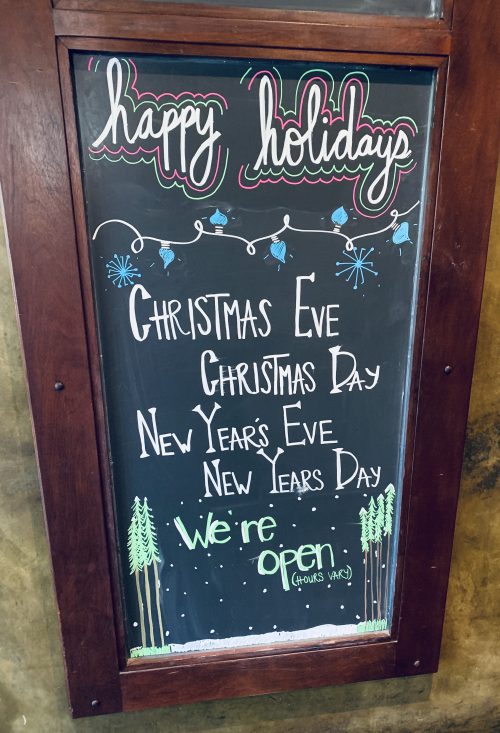 happy holidays
CHRISTMAS EVE
CHRISTMAS DAY
NEW YEAR'S EVE
NEW YEARS DAY
We're
open
(HOURS VARY)